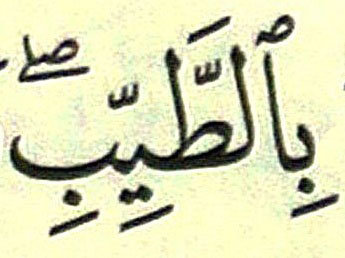 بِٱلطَّيِّبِ ۖ